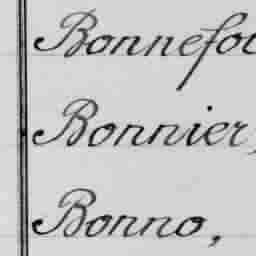 Bonnefoi
Bonnier,
Bonno,